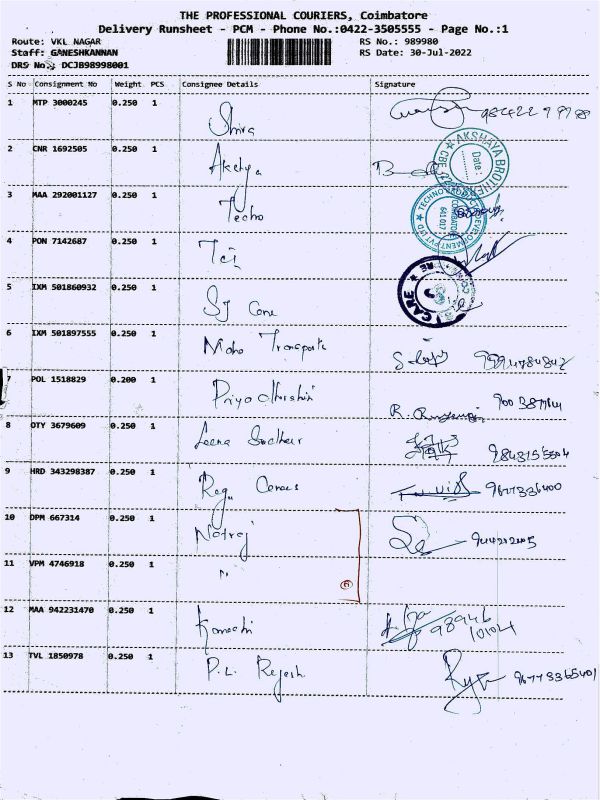 THE PROFESSIONAL COURIERS, Coimbatore
Delivery Runsheet - PCM - Phone No.:0422-3505555 - Page No.:1
Route: VKL NAGAR RS No.: 989980
Staff: GANESHKANNAN RS Date: 30-Jul-2022
DRS No.: DCJB98998001
S No Consignment No Weight PCS Consignee Details Signature
1 MTP 3000245 0.250 1 Shiva
2 CNR 1692505 0.250 1
AKSHAYA BROTHE
Date:
3 MAA 292001127 0.250 1 Techo
COIMBATORE
641 017
4 PON 7142687 0.250 1 Tci
5 IXM 501860932 0.250 1 SJ Care
CARE
6 IXM 501897555 0.250 1 Transports
7 POL 1518829 0.200 1 Priyadharshini
8 OTY 3679609 0.250 1 Leena Sudheer
9 HRD 343298387 0.250 1 Regu 9677336400
10 DPM 667314 0.250 1 Natraj
11 VPM 4746918 0.250 1 "
12 MAA 942231470 0.250 1 Kamachi 98946
10104
13 TVL 1850978 0.250 1 P.L. Rejesh 96773365401